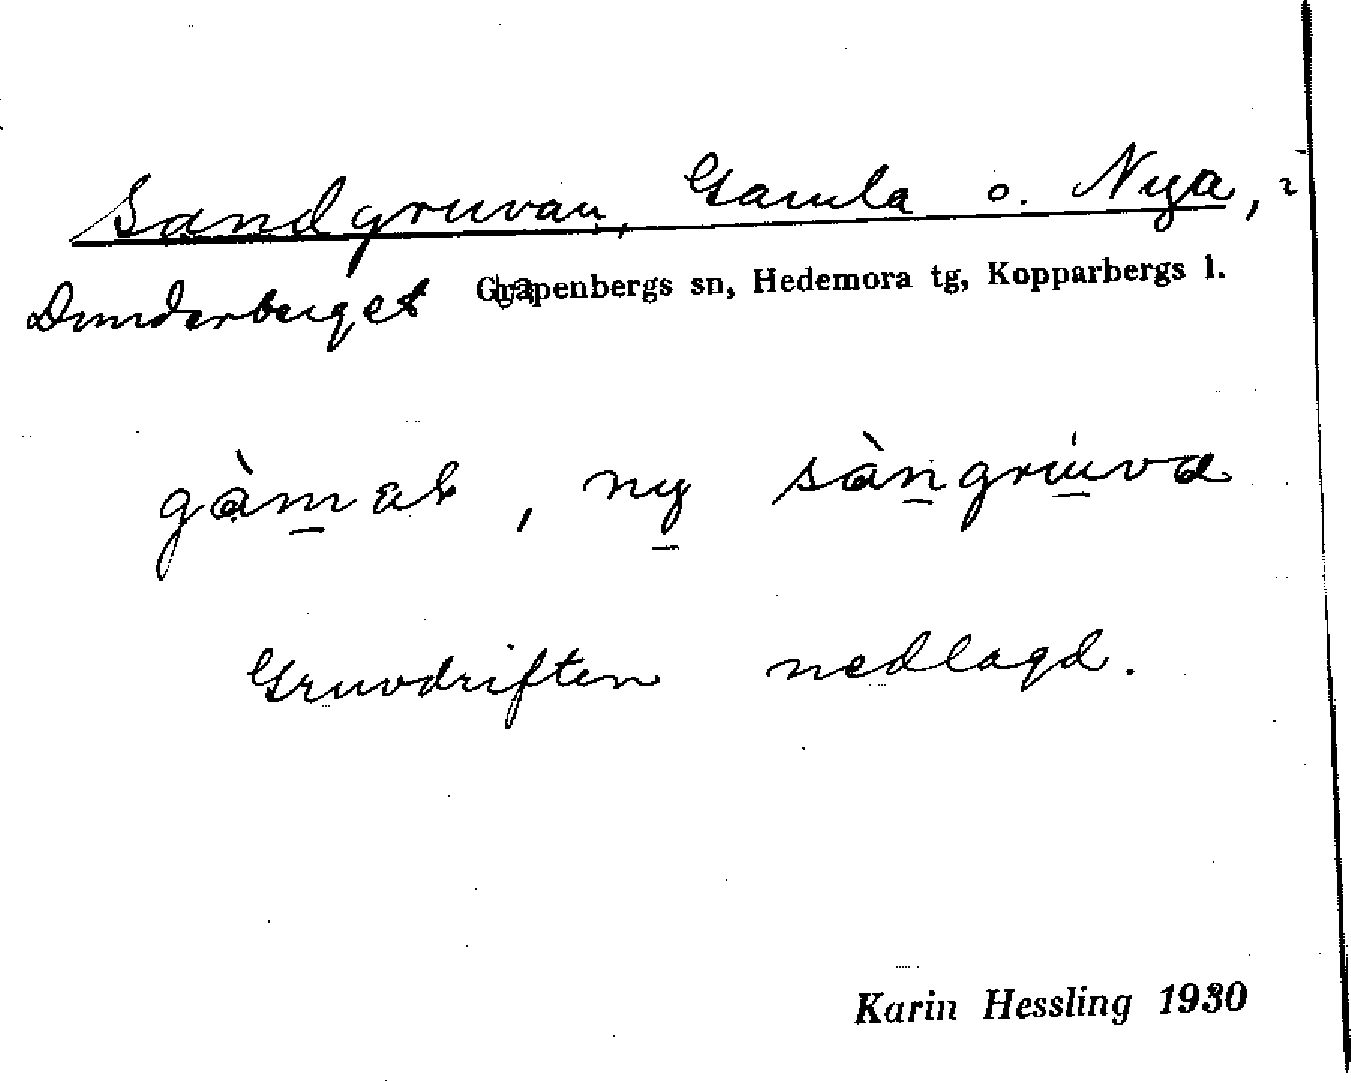 Sandgruvan, Gamla o. Nya, i
Dunderberget Garpenbergs sn, Hedemora tg, Kopparbergs l.
gàmal, ny sàngruva
Gruvdriften nedlagd.
Karin Hessling 1930